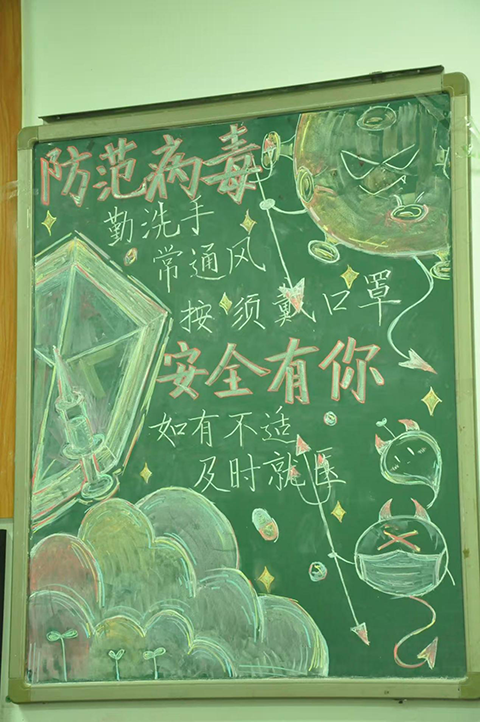 防范病毒
勤洗手
常通风
按须戴口罩
安全有你
如有不适
及时就医